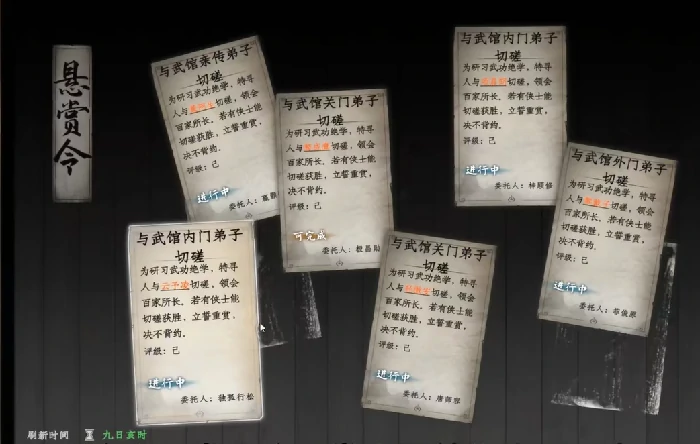 悬赏令
与武馆亲传弟子
切磋
为研习武功绝学，特寻
人与
切磋，领会
百家所长。若有侠士能
切磋获胜，立誓重赏，
决不背约。
评级：己
进行中
委托人：
与武馆关门弟子
切磋
为研习武功绝学，特寻
人与
切磋，领会
百家所长。若有侠士能
切磋获胜，立誓重赏，
决不背约。
评级：己
可完成
委托人：
与武馆内门弟子
切磋
为研习武功绝学，特寻
人与
切磋，领会
百家所长。若有侠士能
切磋获胜，立誓重赏，
决不背约。
评级：己
进行中
委托人：
与武馆外门弟子
切磋
为研习武功绝学，特寻
人与
切磋，领会
百家所长。若有侠士能
切磋获胜，立誓重赏，
决不背约。
评级：己
进行中
委托人：
与武馆内门弟子
切磋
为研习武功绝学，特寻
人与
切磋，领会
百家所长。若有侠士能
切磋获胜，立誓重赏，
决不背约。
评级：己
进行中
委托人：独孤行松
与武馆关门弟子
切磋
为研习武功绝学，特寻
人与
切磋，领会
百家所长。若有侠士能
切磋获胜，立誓重赏，
决不背约。
评级：己
进行中
委托人：
刷新时间
九日亥时